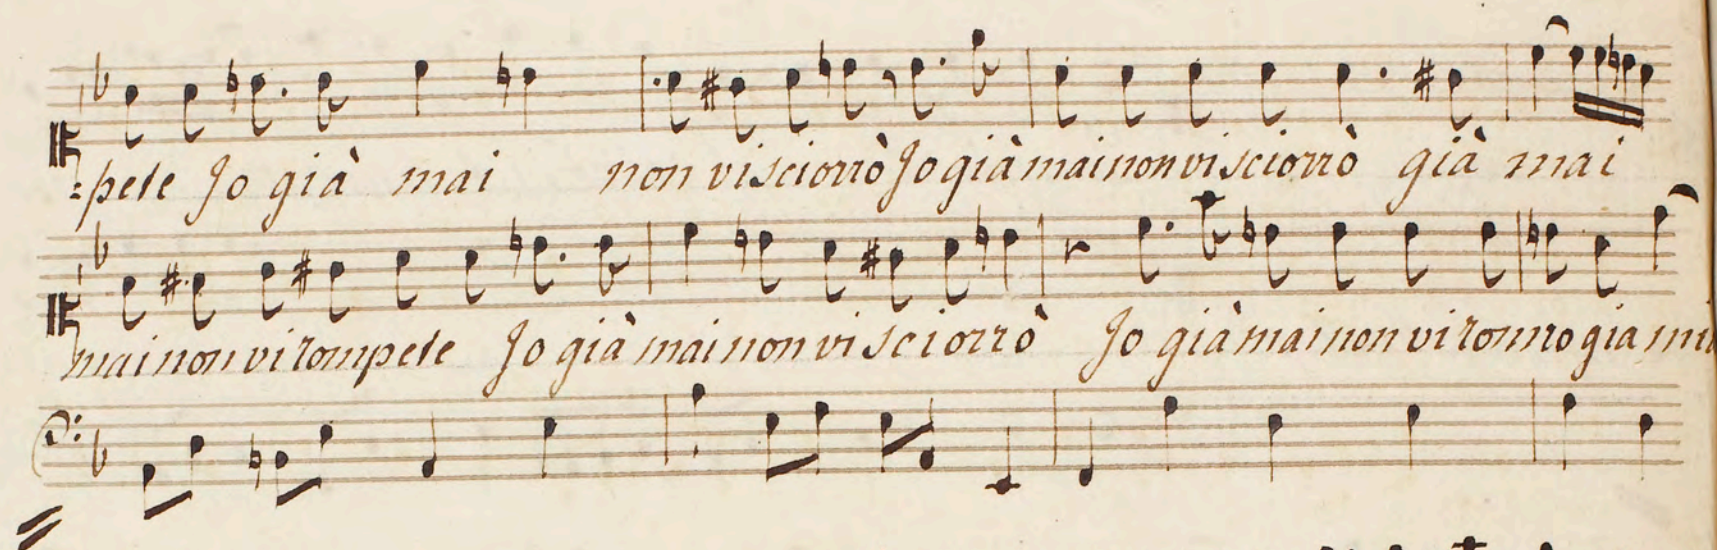 =pete Jo già mai non vi sciorrò Jo già mai non vi sciorrò già mai
mai non vi rompete Jo già mai non vi sciorrò Jo già mai non vi rorrro gia mai